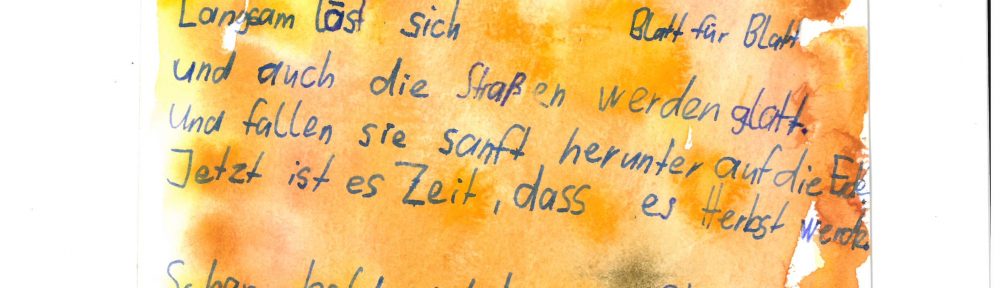 Langsam löst sich Blatt für Blatt
und auch die Straßen werden glatt.
Und fallen sie sanft herunter auf die Erde.
Jetzt ist es Zeit, dass es Herbst werde.